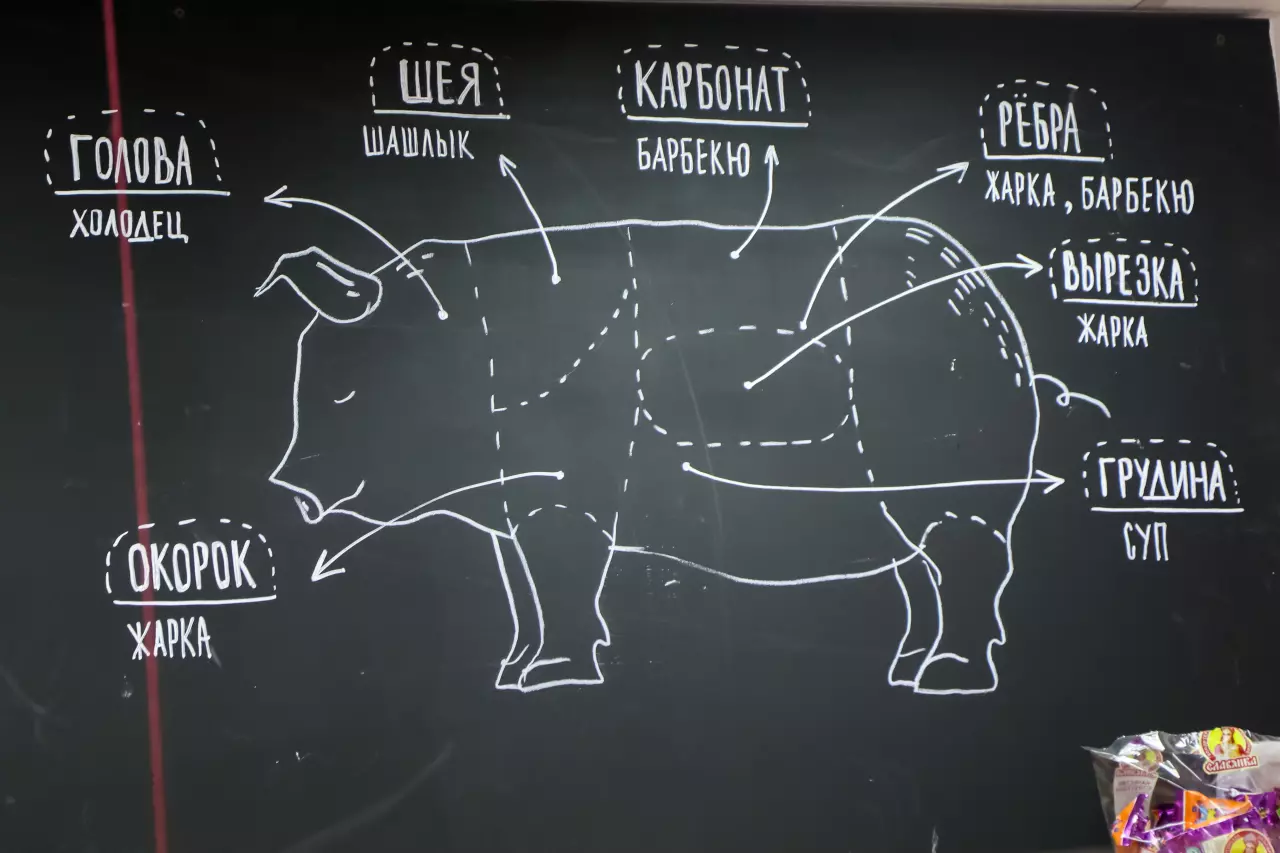 ШЕЯ
ШАШЛЫК
КАРБОНАТ
БАРБЕКЮ
РЁБРА
ЖАРКА, БАРБЕКЮ
ГОЛОВА
ХОЛОДЕЦ
ВЫРЕЗКА
ЖАРКА
ГРУДИНА
СУП
ОКОРОК
ЖАРКА
СЛАВЯНКА